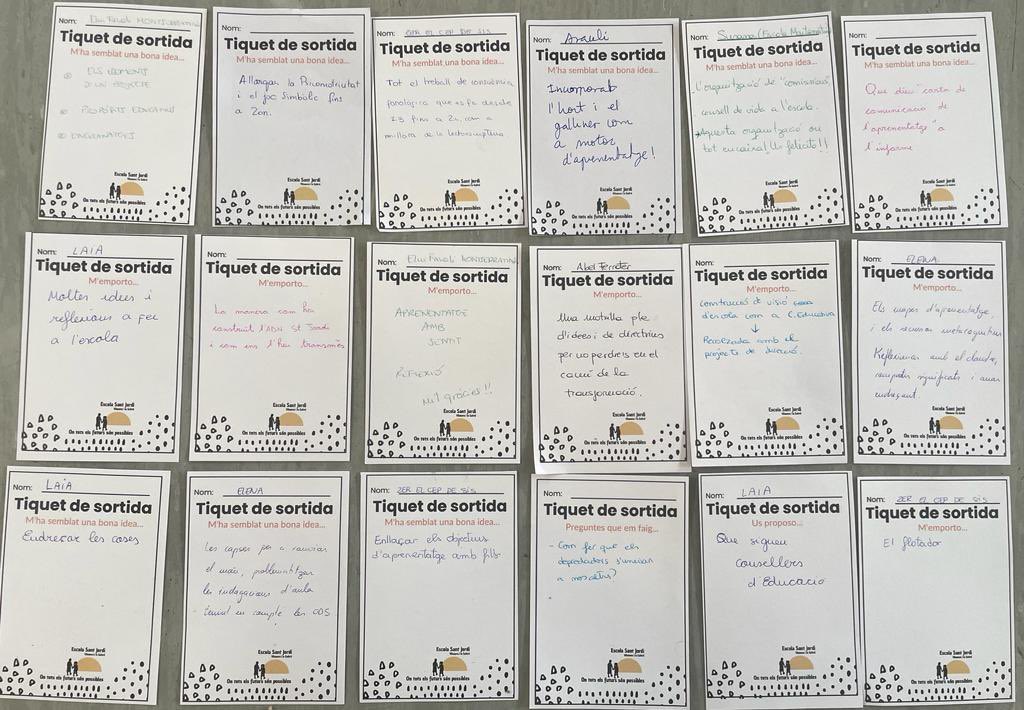 Nom:
Tiquet de sortida
M'ha semblat una bona idea...
ELS
D'UN PROJECTE
PROPÒSITS EDUCATIUS
ENGRUNATGES
Escola Sant Jordi
On tots els futurs són possibles
Nom:
Tiquet de sortida
M'ha semblat una bona idea...
Allargar la Psicomotricitat
i el joc simbòlic fins
a 2on.
Escola Sant Jordi
On tots els futurs són possibles
Nom: ZER EL CEP DE SIS
Tiquet de sortida
M'ha semblat una bona idea...
Tot el treball de consciència
fonològica que es fa desde
I3 fins a 2n, com a
millora de la lectoescriptura
Escola Sant Jordi
On tots els futurs són possibles
Nom: Araceli
Tiquet de sortida
M'ha semblat una bona idea...
Incorporar
l'hort i el
galliner com
a motor
d'aprenentatge!
Escola Sant Jordi
On tots els futurs són possibles
Nom: Susana (Escola
Tiquet de sortida
M'ha semblat una bona idea...
L'organització de "comissions",
consell de vida a l'escola.
Aquesta organització on
tot encaixa! Us felicito!!
Escola Sant Jordi
On tots els futurs són possibles
Nom:
Tiquet de sortida
M'ha semblat una bona idea...
Que dieu "carta de
comunicació de
l'aprenentatge" a
l'informe
Escola Sant Jordi
On tots els futurs són possibles
Nom: LAIA
Tiquet de sortida
M'emporto...
Moltes idees i
reflexions a fer
a l'escola
Escola Sant Jordi
On tots els futurs són possibles
Nom:
Tiquet de sortida
M'emporto...
La manera com heu
construït l'ADN St Jordi
i com ens l'heu transmès
Escola Sant Jordi
On tots els futurs són possibles
Nom:
Tiquet de sortida
M'emporto...
APRENENTATGE
AMB
SENTIT
REFLEXIÓ
Mil gràcies!!
Escola Sant Jordi
On tots els futurs són possibles
Nom: Abel Ferrater
Tiquet de sortida
M'emporto...
Una motxilla ple
d'idees i de directrius
per no perdre's en el
camí de la
transformació.
Escola Sant Jordi
On tots els futurs són possibles
Nom:
Tiquet de sortida
M'emporto...
Construcció de visió
d'escola com a C. Educativa
↓
Realitzada amb el
projecte de direcció.
Escola Sant Jordi
On tots els futurs són possibles
Nom: ELENA
Tiquet de sortida
M'emporto...
Els mapes d'aprenentatge,
i els recursos metacognitius
Reflexionar amb el claustre,
recuperar significats i anar
endreçant.
Escola Sant Jordi
On tots els futurs són possibles
Nom: LAIA
Tiquet de sortida
M'ha semblat una bona idea...
Endreçar les coses
Escola Sant Jordi
On tots els futurs són possibles
Nom: ELENA
Tiquet de sortida
M'ha semblat una bona idea...
Les capses per a canviar
el món, problematitzar
les indagacions d'aula
tenint en compte les ODS
Escola Sant Jordi
On tots els futurs són possibles
Nom: ZER EL CEP DE SIS
Tiquet de sortida
M'ha semblat una bona idea...
Enllaçar els objectius
d'aprenentatge amb fils
Escola Sant Jordi
On tots els futurs són possibles
Nom:
Tiquet de sortida
Preguntes que em faig...
- Com fer que els
depredadors s'uneixin
a nosaltres?
Escola Sant Jordi
On tots els futurs són possibles
Nom: LAIA
Tiquet de sortida
Us proposo...
Que sigueu
consellers
d'Educació
Escola Sant Jordi
On tots els futurs són possibles
Nom: ZER EL CEP DE SIS
Tiquet de sortida
M'emporto...
El flotador
Escola Sant Jordi
On tots els futurs són possibles